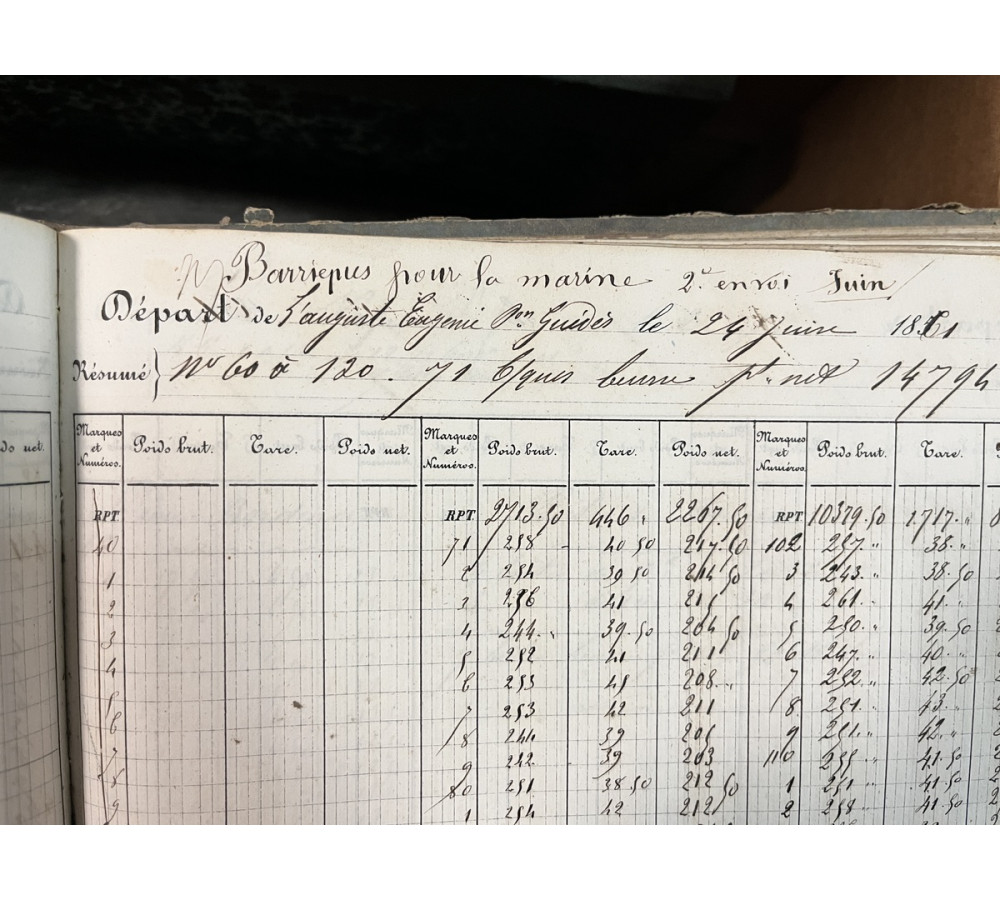 Barriques pour la marine 2e envoi Juin
Départ de L'auguste Eugenie Pon Guidès le 24 Juin 1861
Résumé} No 60 à 120. 71 b/ques beurre pt net 14794
ds net. Marques et Numéros. Poids brut. Tare. Poids net. Marques et Numéros. Poids brut. Tare. Poids net. Marques et Numéros. Poids brut. Tare.
RPT RPT 2713.50 446 " 2267.50 RPT 10379.50 1.717 "
40 71 258 40 50 217.50 102 257 " 38 "
1 2 254 39 50 214 50 3 243 " 38.50
2 3 256 41 215 4 261 " 41 "
3 4 244 " 39.50 204 50 5 250 " 39.50
4 5 252 41 211 6 247 " 40 "
5 6 253 45 208 " 7 252 " 42.50
6 7 253 42 211 8 251 " 43 "
7 8 244 39 205 9 251 " 42 "
8 9 242 39 203 110 255 " 41.50
9 80 251 38.50 212 50 1 251 " 41 50
1 254 42 212 2 258 " 41.50